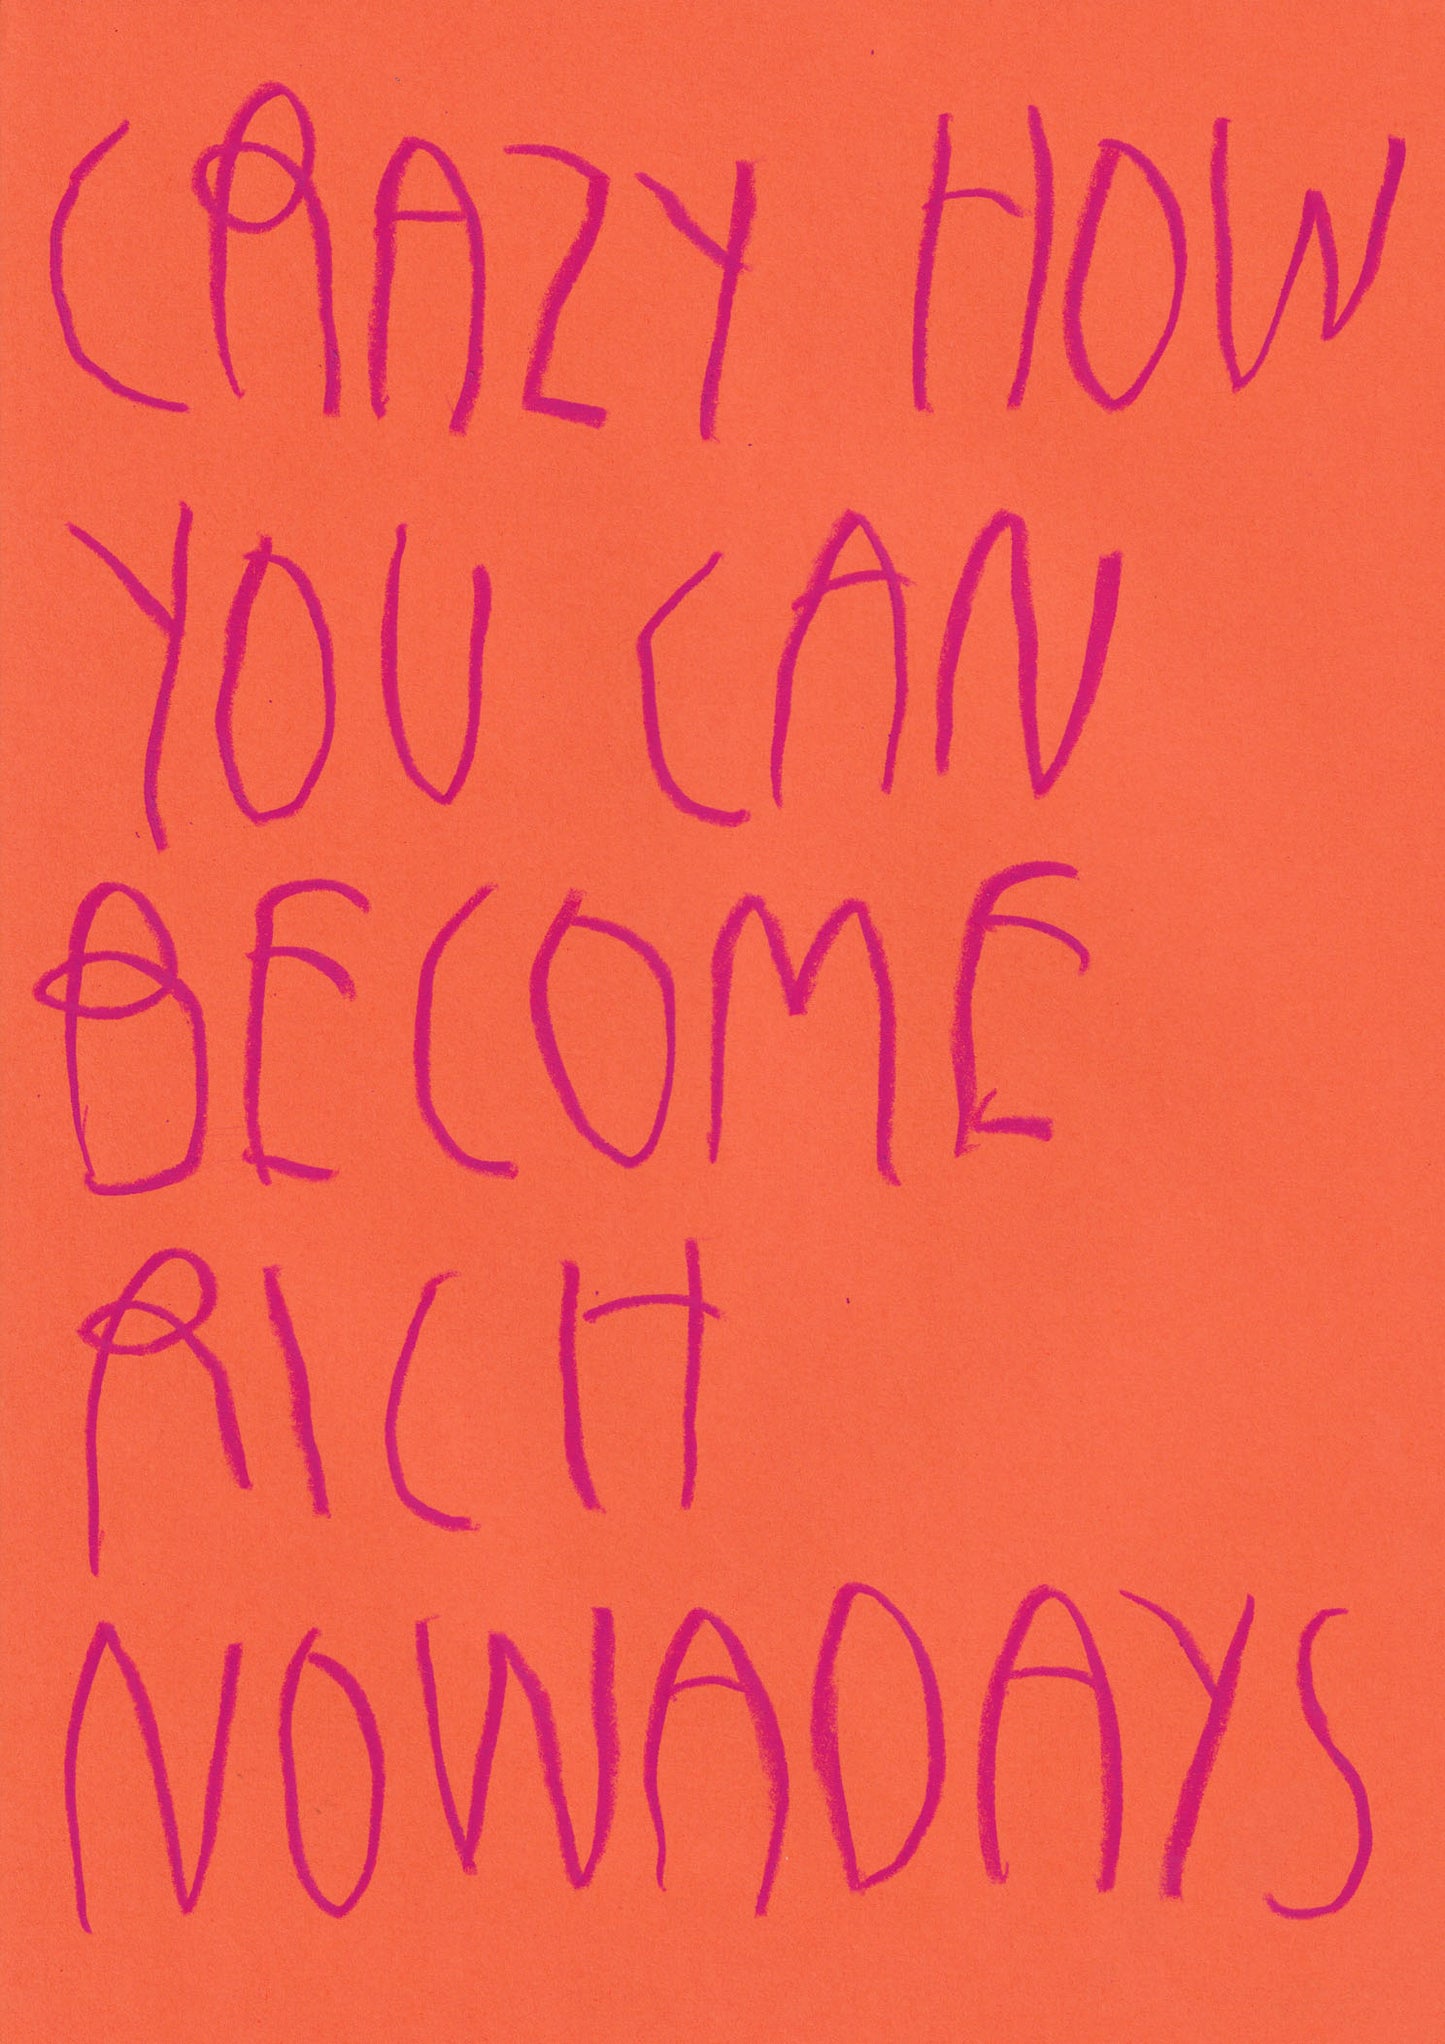 CRAZY HOW
YOU CAN
BECOME
RICH
NOWADAYS